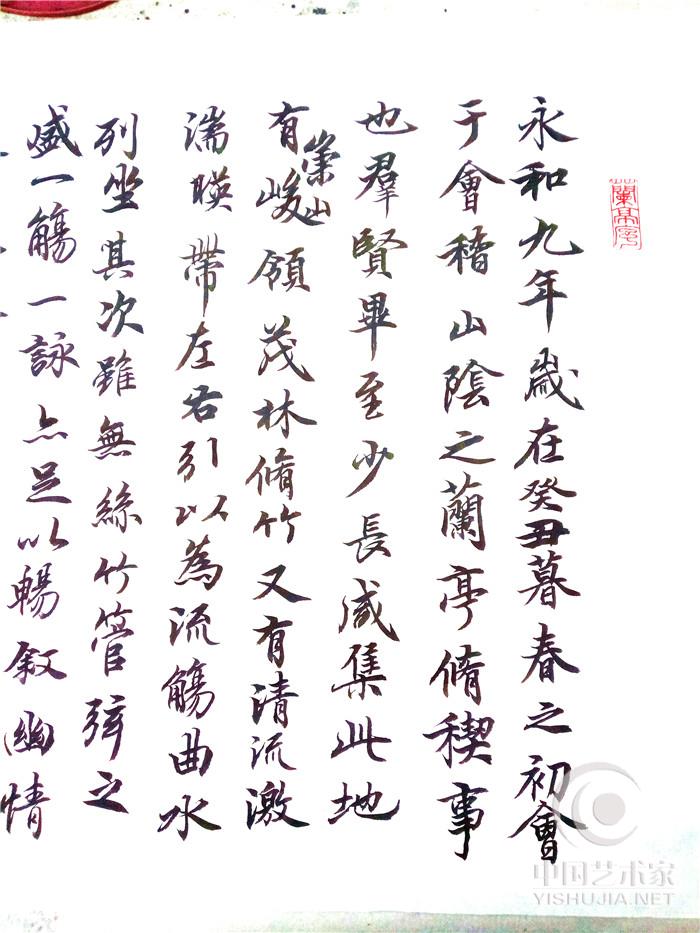 蘭亭序
永和九年歲在癸丑暮春之初會
于會稽山陰之蘭亭脩稧事
也羣賢畢至少長咸集此地
有崇山峻領茂林脩竹又有清流激
湍暎帶左右引以為流觴曲水
列坐其次雖無絲竹管弦之
盛一觴一詠亦足以暢叙幽情
中国艺术家
YISHUJIA.NET